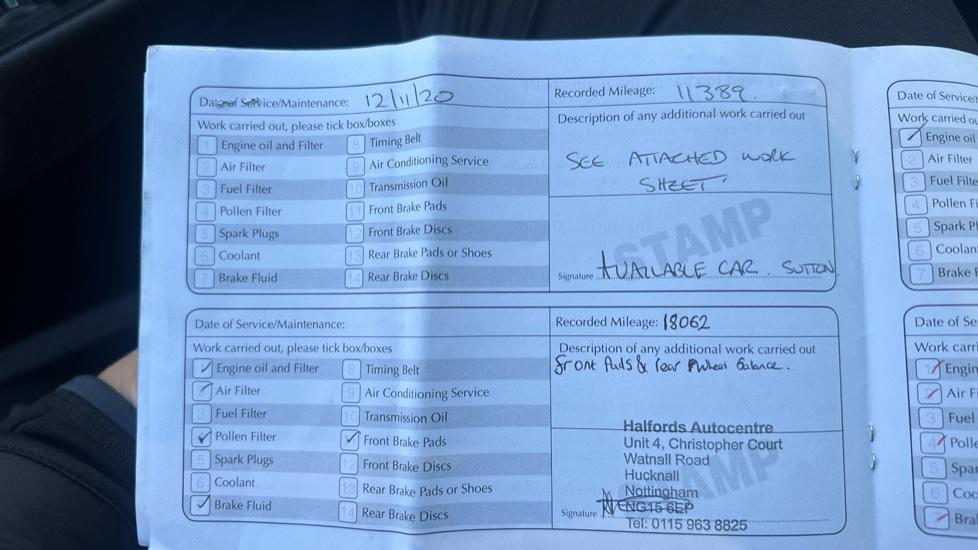 Date of Service/Maintenance: 12/11/20
Recorded Mileage: 11389.
Work carried out, please tick box/boxes
Description of any additional work carried out
1 Engine oil and Filter
8 Timing Belt
2 Air Filter
9 Air Conditioning Service
3 Fuel Filter
10 Transmission Oil
4 Pollen Filter
11 Front Brake Pads
5 Spark Plugs
12 Front Brake Discs
6 Coolant
13 Rear Brake Pads or Shoes
7 Brake Fluid
14 Rear Brake Discs
SEE ATTACHED WORK
SHEET
STAMP
Signature AVAILABLE CAR. SUTTON
Date of Service/Maintenance:
Recorded Mileage: 18062
Work carried out, please tick box/boxes
Description of any additional work carried out
Engine oil and Filter
8 Timing Belt
Air Filter
9 Air Conditioning Service
3 Fuel Filter
10 Transmission Oil
Pollen Filter
Front Brake Pads
5 Spark Plugs
12 Front Brake Discs
6 Coolant
13 Rear Brake Pads or Shoes
Brake Fluid
14 Rear Brake Discs
Front Pads & rear Wheel balance.
Halfords Autocentre
Unit 4, Christopher Court
Watnall Road
Hucknall
Nottingham
NG15 6EP
Tel: 0115 963 8825
STAMP
Signature
Date of Service/
Work carried ou
Engine oil
2 Air Filter
3 Fuel Filte
4 Pollen Fi
5 Spark Pl
6 Coolan
7 Brake F
Date of Se
Work carri
1 Engin
Air F
3 Fuel
4 Polle
5 Spar
6 Coo
Bra